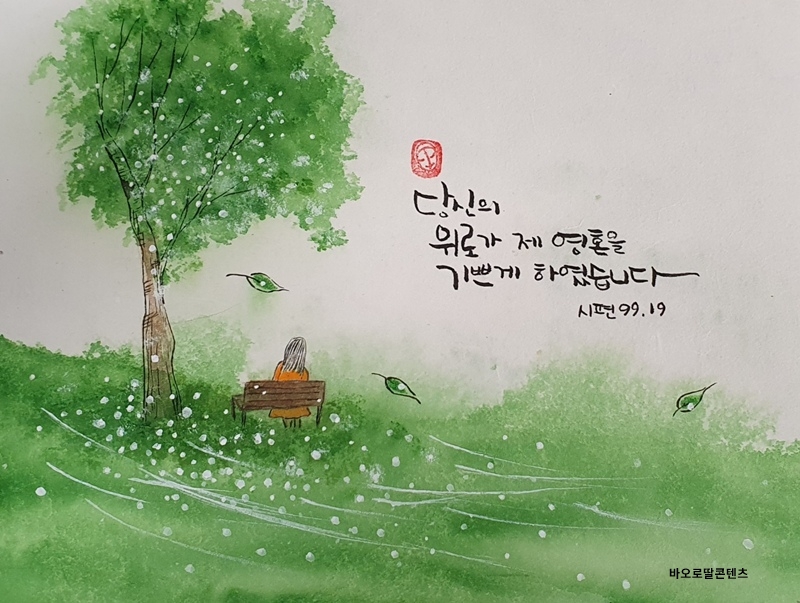 당신의
위로가 제 영혼을
기쁘게 하였습니다
시편 99.19
바오로딸콘텐츠